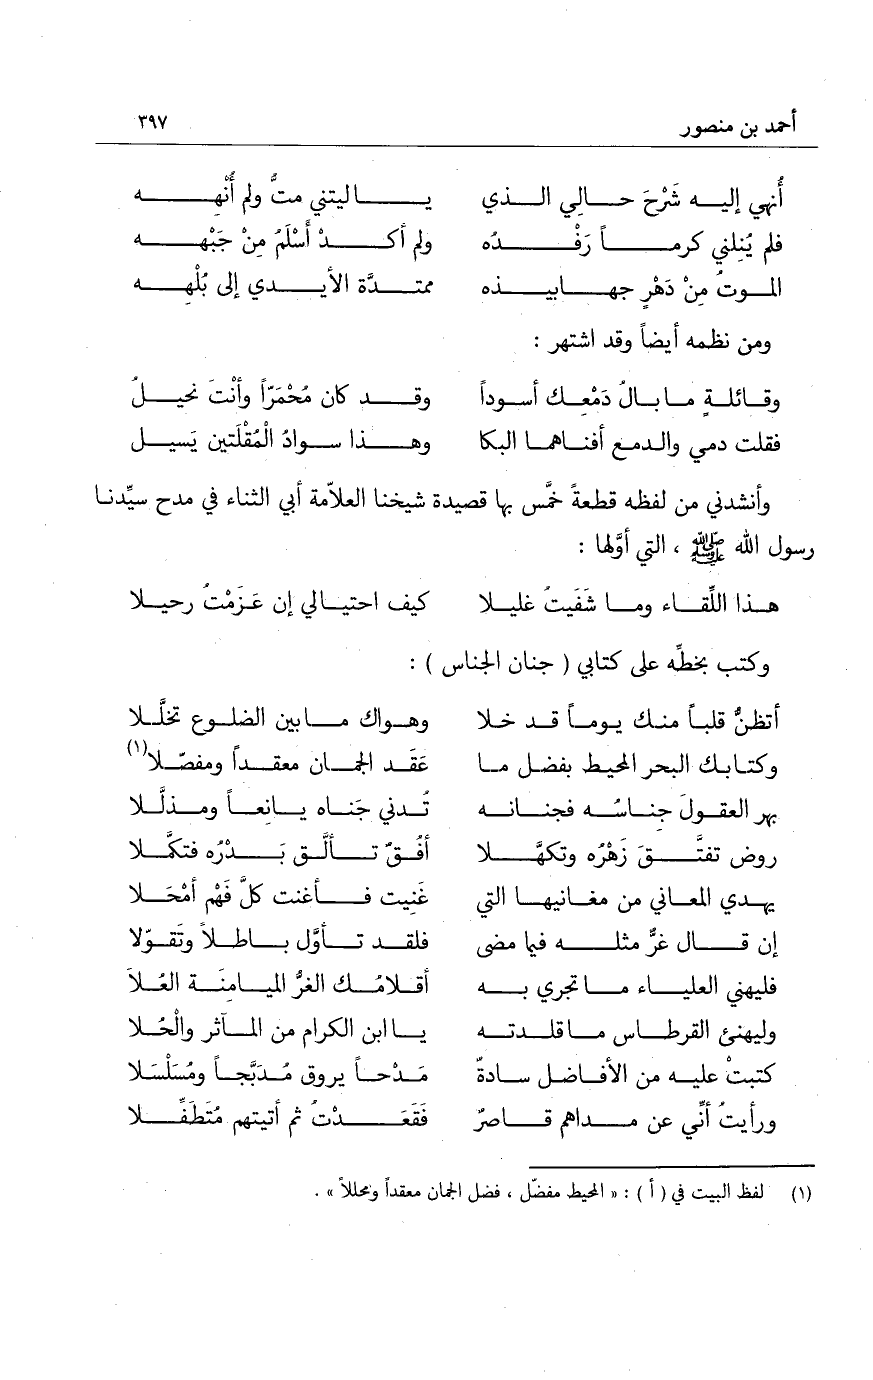 أحمد بن منصور ٣٩٧
أُنهي إليه شَرْحَ حالي الذي يا ليتني متُّ ولم أُنْهه
فلم يُنِلني كرماً رَفْدُه ولم أكدْ أسْلَمُ مِنْ جَبْهه
الموتُ مِنْ دَهْرٍ جهابيذه ممتدَّة الأيدي إلى بُلْهه
ومن نظمه أيضاً وقد اشتهر :
وقائلةٍ ما بالُ دَمْعِك أسوداً وقد كان مُحْمَرّاً وأنْتَ نحيلُ
فقلت دمي والدمع أفناهما البكا وهذا سوادُ الْمُقْلَتين يَسيل
وأنشدني من لفظه قطعةً خمَّس بها قصيدة شيخنا العلاّمة أبي الثناء في مدح سيِّدنا
رسول الله ﷺ ، التي أوَّلها :
هذا اللِّقاء وما شَفَيتُ غليلا كيف احتيالي إن عَزَمْتُ رحيلا
وكتب بخطِّه على كتابي ( جنان الجناس ) :
أتظنُّ قلباً منك يوماً قد خلا وهواك ما بين الضلوع تخلَّلا
وكتابك البحر المحيط بفضل ما عَقَد الجمان معقداً ومفصّلا(١)
بهر العقولَ جناسُه فجنانه تُدني جَناه يانعاً ومذلَّلا
روض تفتَّقَ زَهْرُه وتكهَّلا أفُقٌ تألَّق بَدْرُه فتكمَّلا
يهدي المعاني من مغانيها التي غَنِيت فأغنت كلَّ فَهْمٍ أمْحَلا
إن قال غرٌّ مثله فيما مضى فلقد تأوَّل باطلاً وتَقوّلا
فليهني العلياء ما تجري به أقلامُك الغرُّ الميامنَة العُلاَ
وليهنئ القرطاس ما قلدته يا ابن الكرام من المآثر والْحُلا
كتبتْ عليه من الأفاضل سادةٌ مَدْحاً يروق مُدَبَّجاً ومُسَلْسَلا
ورأيتُ أنِّي عن مداهم قاصرٌ فَقَعَدْتُ ثم أتيتهم مُتَطَفِّلا
(١) لفظ البيت في ( أ ) : « المحيط مفضّل ، فضل الجمان معقداً ومحللاً » .